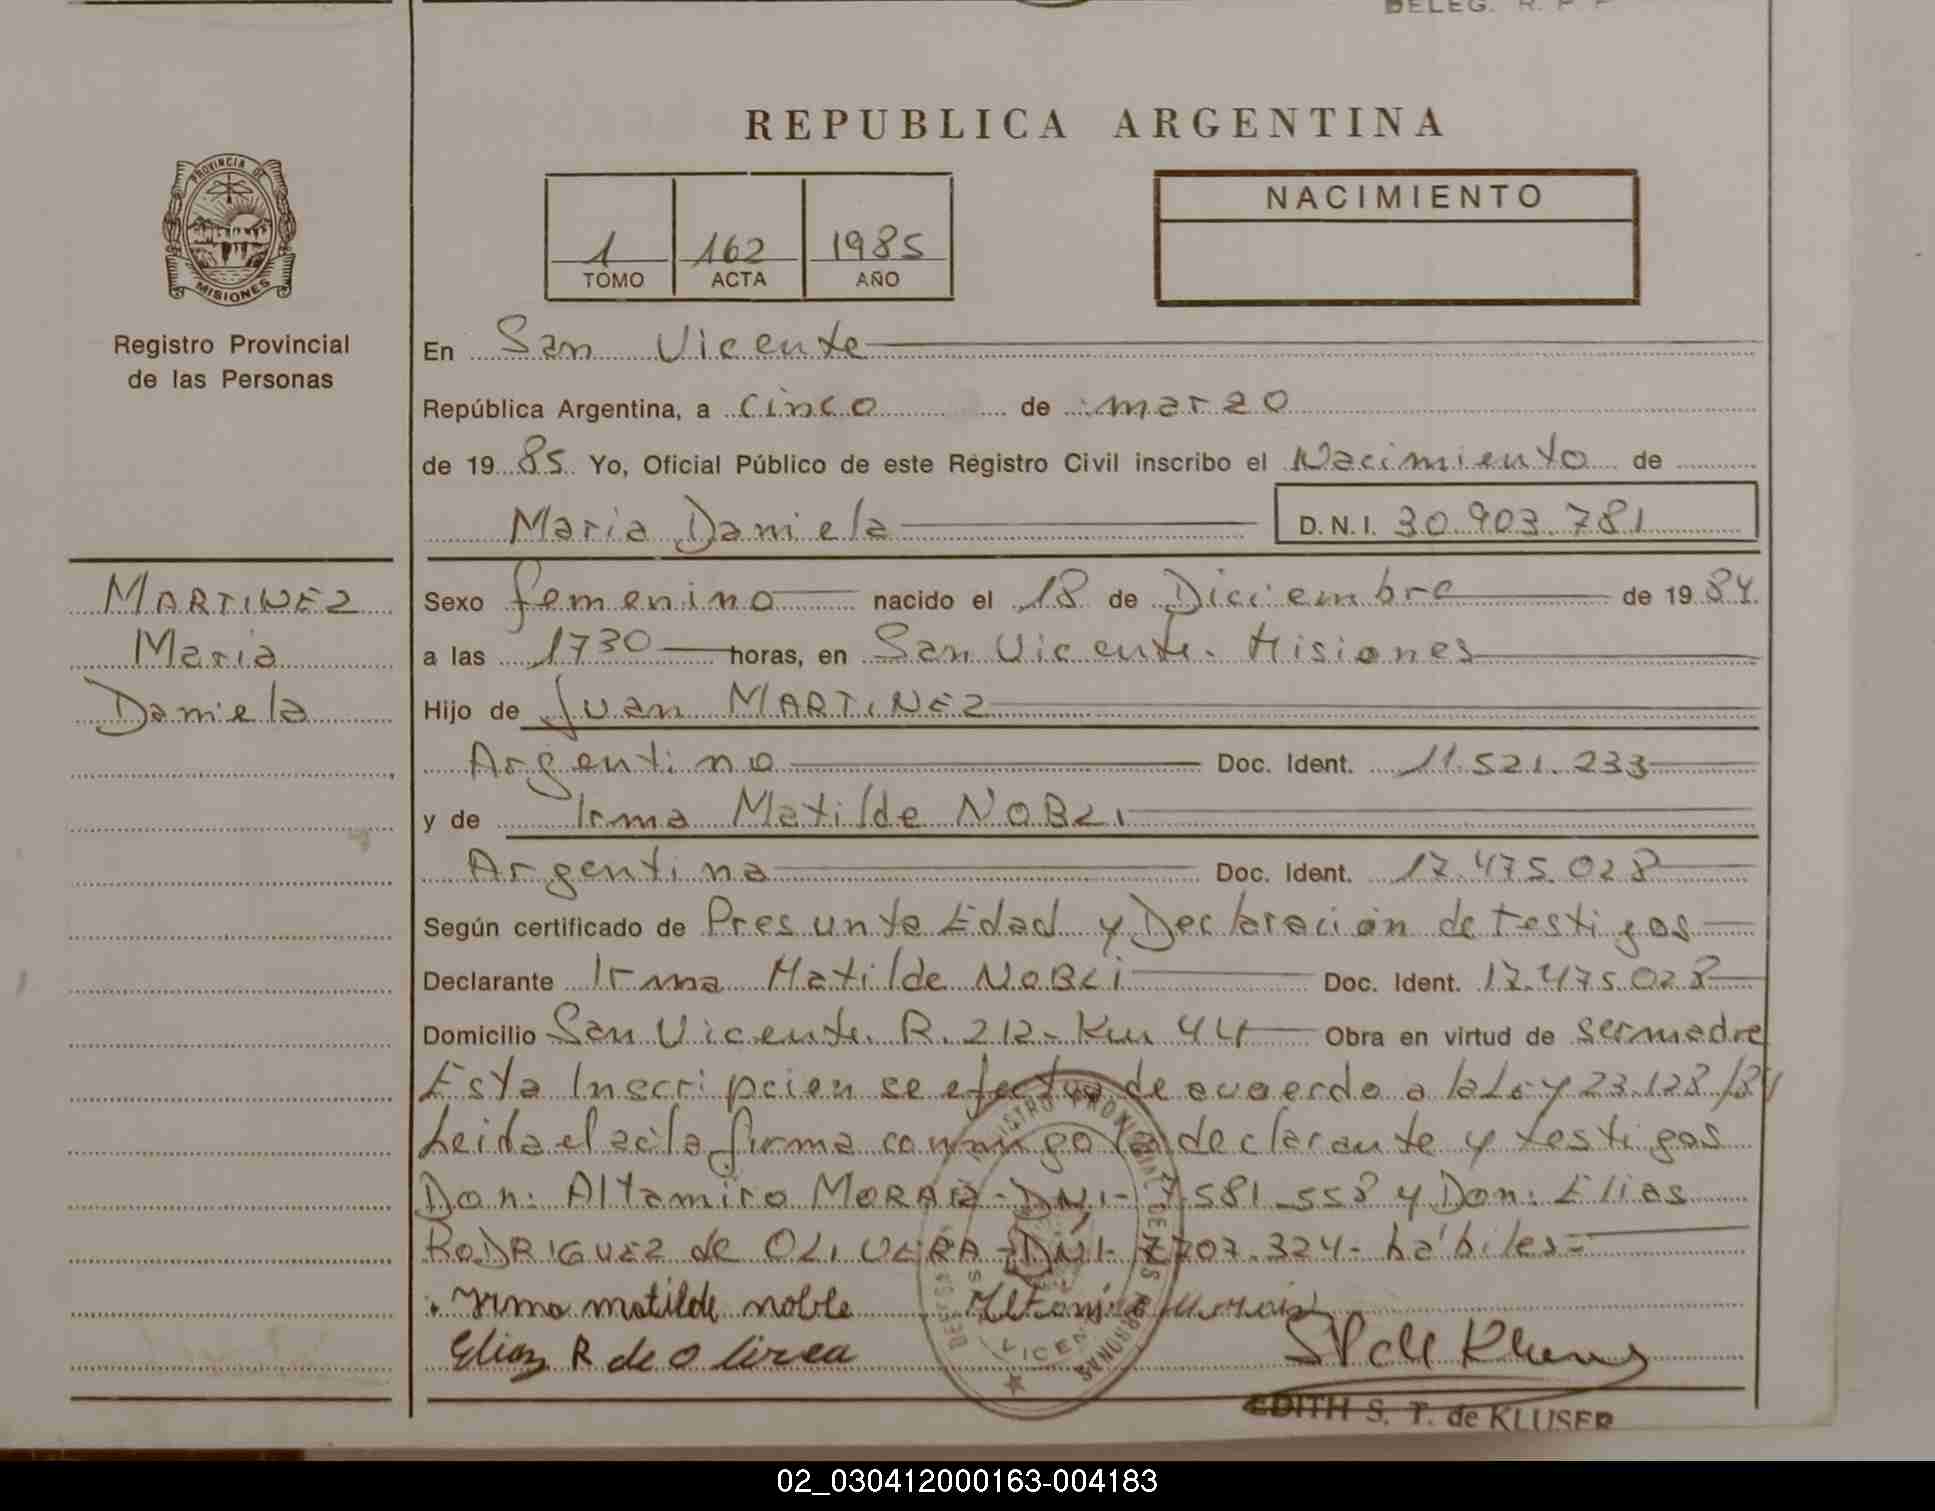 DELEG. R. P. P
REPUBLICA ARGENTINA
PROVINCIA DE
MISIONES
Registro Provincial
de las Personas
1 162 1985
TOMO ACTA AÑO
NACIMIENTO
En San Vicente
República Argentina, a cinco de marzo
de 1985 Yo, Oficial Público de este Registro Civil inscribo el Nacimiento de
Maria Daniela D.N.I. 30.903.781
MARTINEZ
Maria
Daniela
Sexo femenino nacido el 18 de Diciembre de 1984.
a las 1730 horas, en San Vicente. Misiones
Hijo de Juan MARTINEZ
Argentino Doc. Ident. 11.521.233
y de Irma Matilde NOBLI
Argentina Doc. Ident. 17.475.028
Según certificado de Presunta Edad y Declaración de testigos
Declarante Irma Matilde NOBLI Doc. Ident. 17.475.028
Domicilio San Vicente. R. 212- Km 44 Obra en virtud de ser madre
Esta Inscripcion se efectua de acuerdo a la Ley 23.128/84
Leida el acta firma conmigo la declarante y testigos
Don: Altamiro MORAIS-DNI- 7.581.558 y Don: Elias
RODRIGUEZ de OLIVERA-DNI- 7.707.324- hábiles=
Yrma matilde noble
Elias R de Olivea
EDITH S. T. de KLUSER
02_030412000163-004183